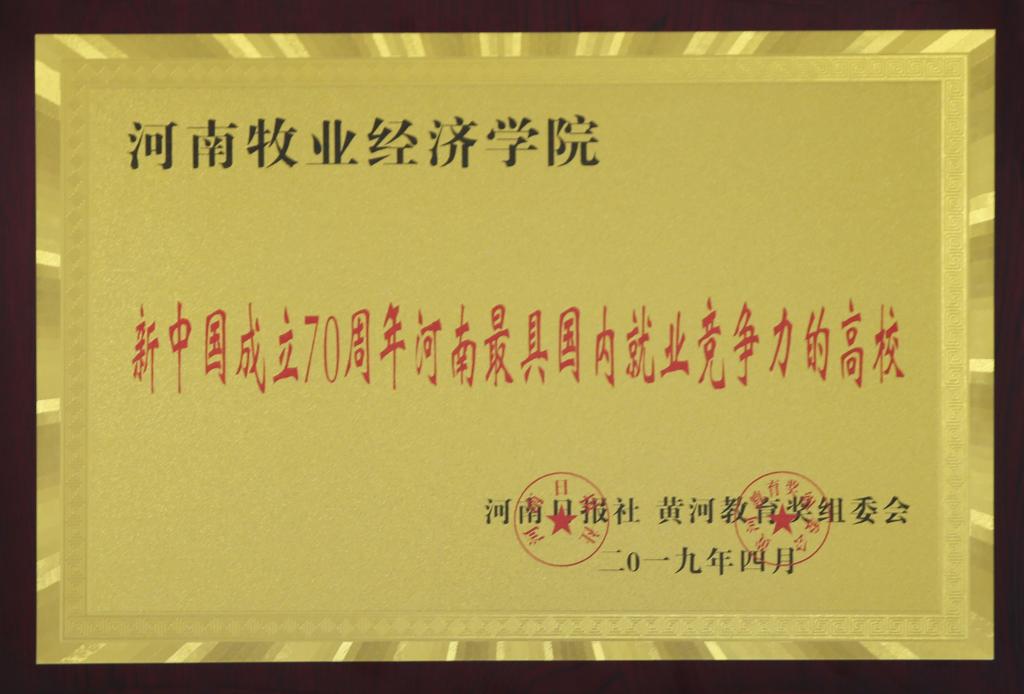 河南牧业经济学院
新中国成立70周年河南最具国内就业竞争力的高校
河南日报社 黄河教育奖组委会
二0一九年四月